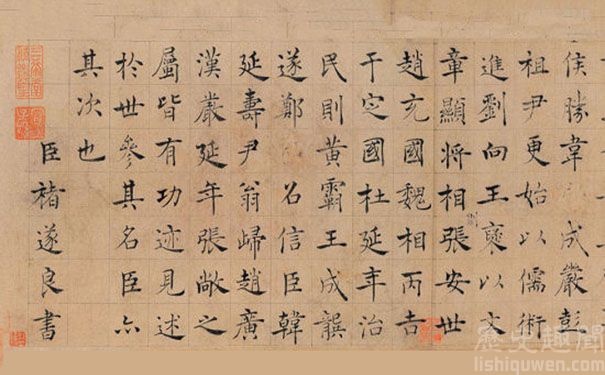 侯勝韋成嚴彭
祖尹更始以儒術
進劉向王褒以文
章顯將相張安世
趙充國魏相丙吉
于定國杜延年治
民則黃霸王成龔
遂鄭召信臣韓
延壽尹翁歸趙廣
漢嚴延年張敞之
屬皆有功迹見述
於世參其名臣亦
其次也
臣褚遂良書
歷史趣聞
lishiquwen.com